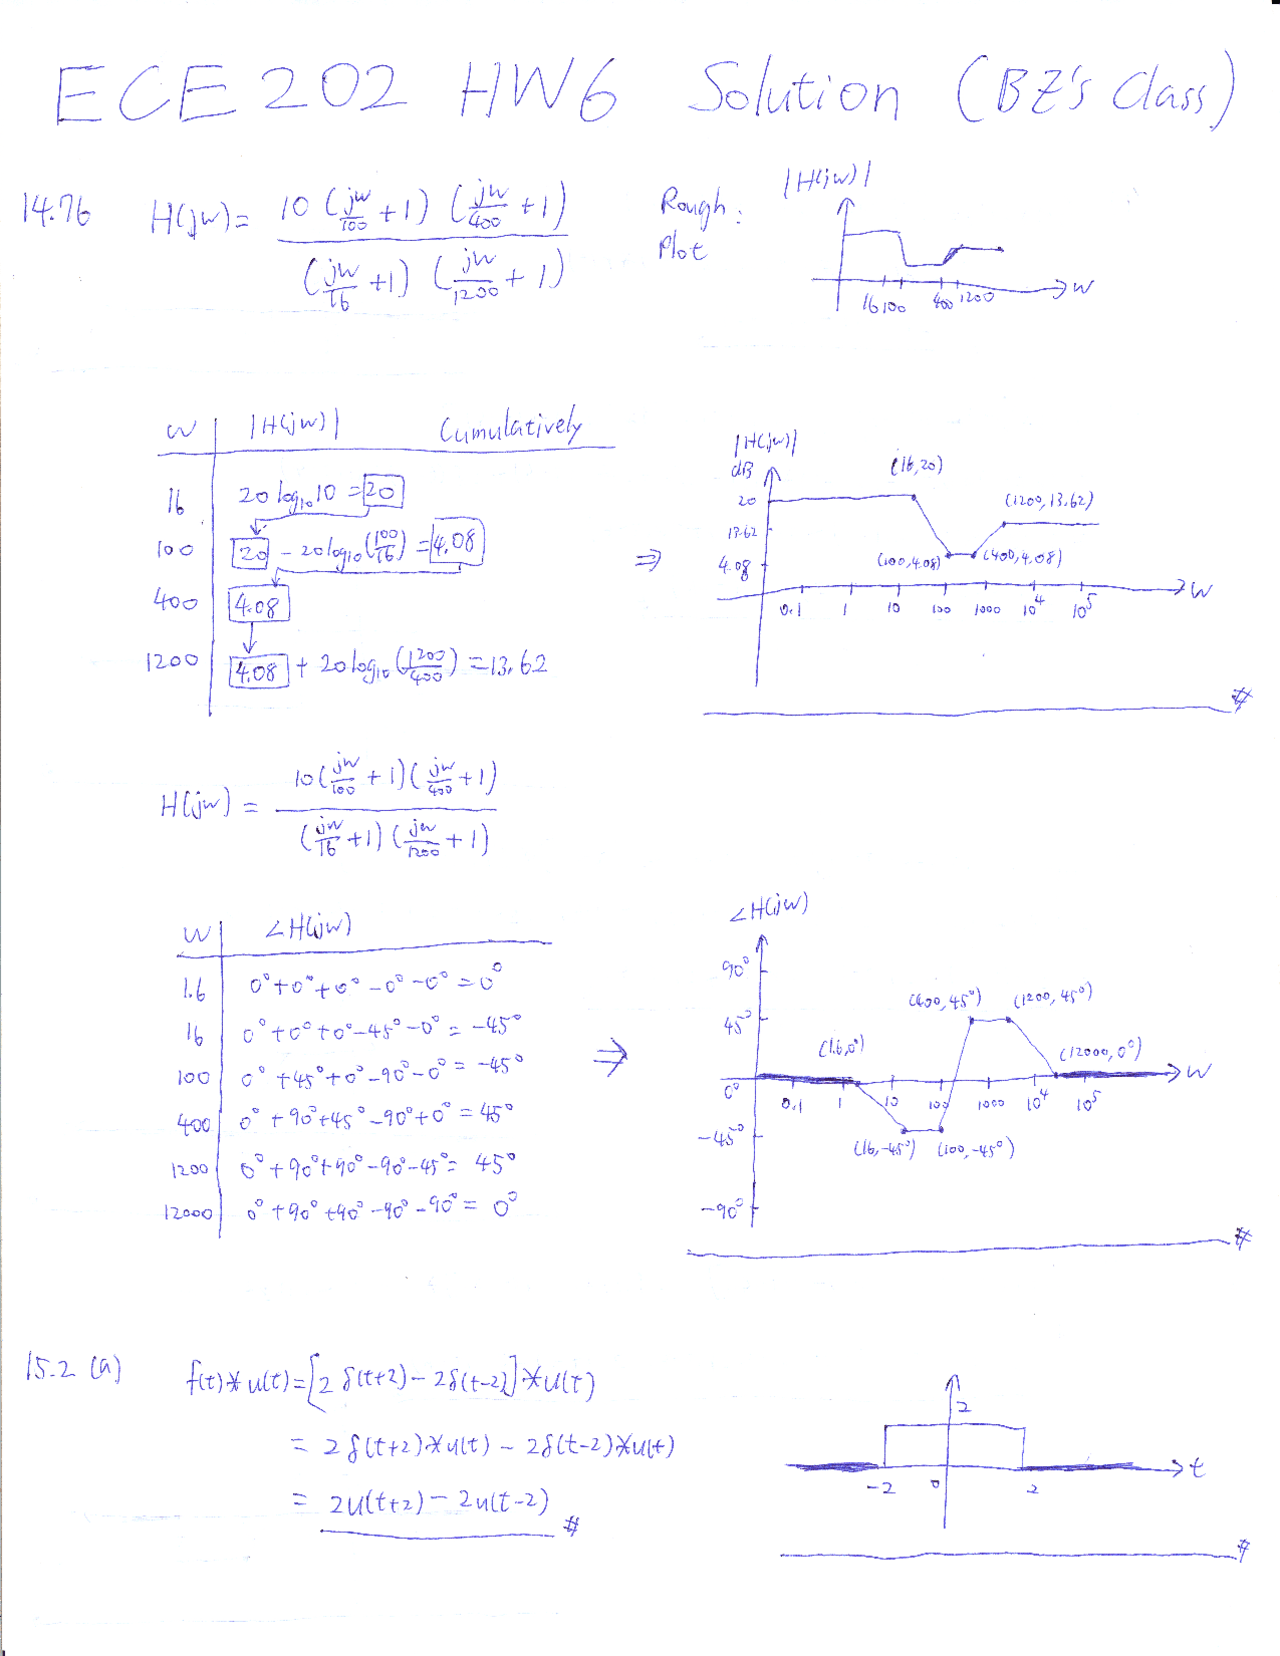 ECE 202 HW6 Solution (BZ's Class)
14.76 H(jw) = 10 (jw/100 + 1) (jw/400 + 1) / (jw/16 + 1) (jw/1200 + 1)
Rough Plot :
|H(jw)|
16 100 400 1200 w
w |H(jw)| Cumulatively
16 20 log₁₀ 10 = 20
100 20 - 20 log₁₀ (100/16) = 4.08
400 4.08
1200 4.08 + 20 log₁₀ (1200/400) = 13.62
⇒
|H(jw)|
dB
(16, 20)
20
(1200, 13.62)
13.62
4.08
(100, 4.08) (400, 4.08)
0.1 1 10 100 1000 10⁴ 10⁵ w
#
H(jw) = 10 (jw/100 + 1) (jw/400 + 1) / (jw/16 + 1) (jw/1200 + 1)
w ∠H(jw)
1.6 0° + 0° + 0° - 0° - 0° = 0°
16 0° + 0° + 0° - 45° - 0° = -45°
100 0° + 45° + 0° - 90° - 0° = -45°
400 0° + 90° + 45° - 90° + 0° = 45°
1200 0° + 90° + 90° - 90° - 45° = 45°
12000 0° + 90° + 90° - 90° - 90° = 0°
⇒
∠H(jw)
90°
(400, 45°) (1200, 45°)
45°
(1.6, 0°) (12000, 0°)
0° 0.1 1 10 100 1000 10⁴ 10⁵ w
-45°
(16, -45°) (100, -45°)
-90°
#
15.2 (a) f(t) * u(t) = [2 δ(t+2) - 2δ(t-2)] * u(t)
= 2 δ(t+2) * u(t) - 2δ(t-2) * u(t)
= 2u(t+2) - 2u(t-2) #
2
-2 0 2 t
#